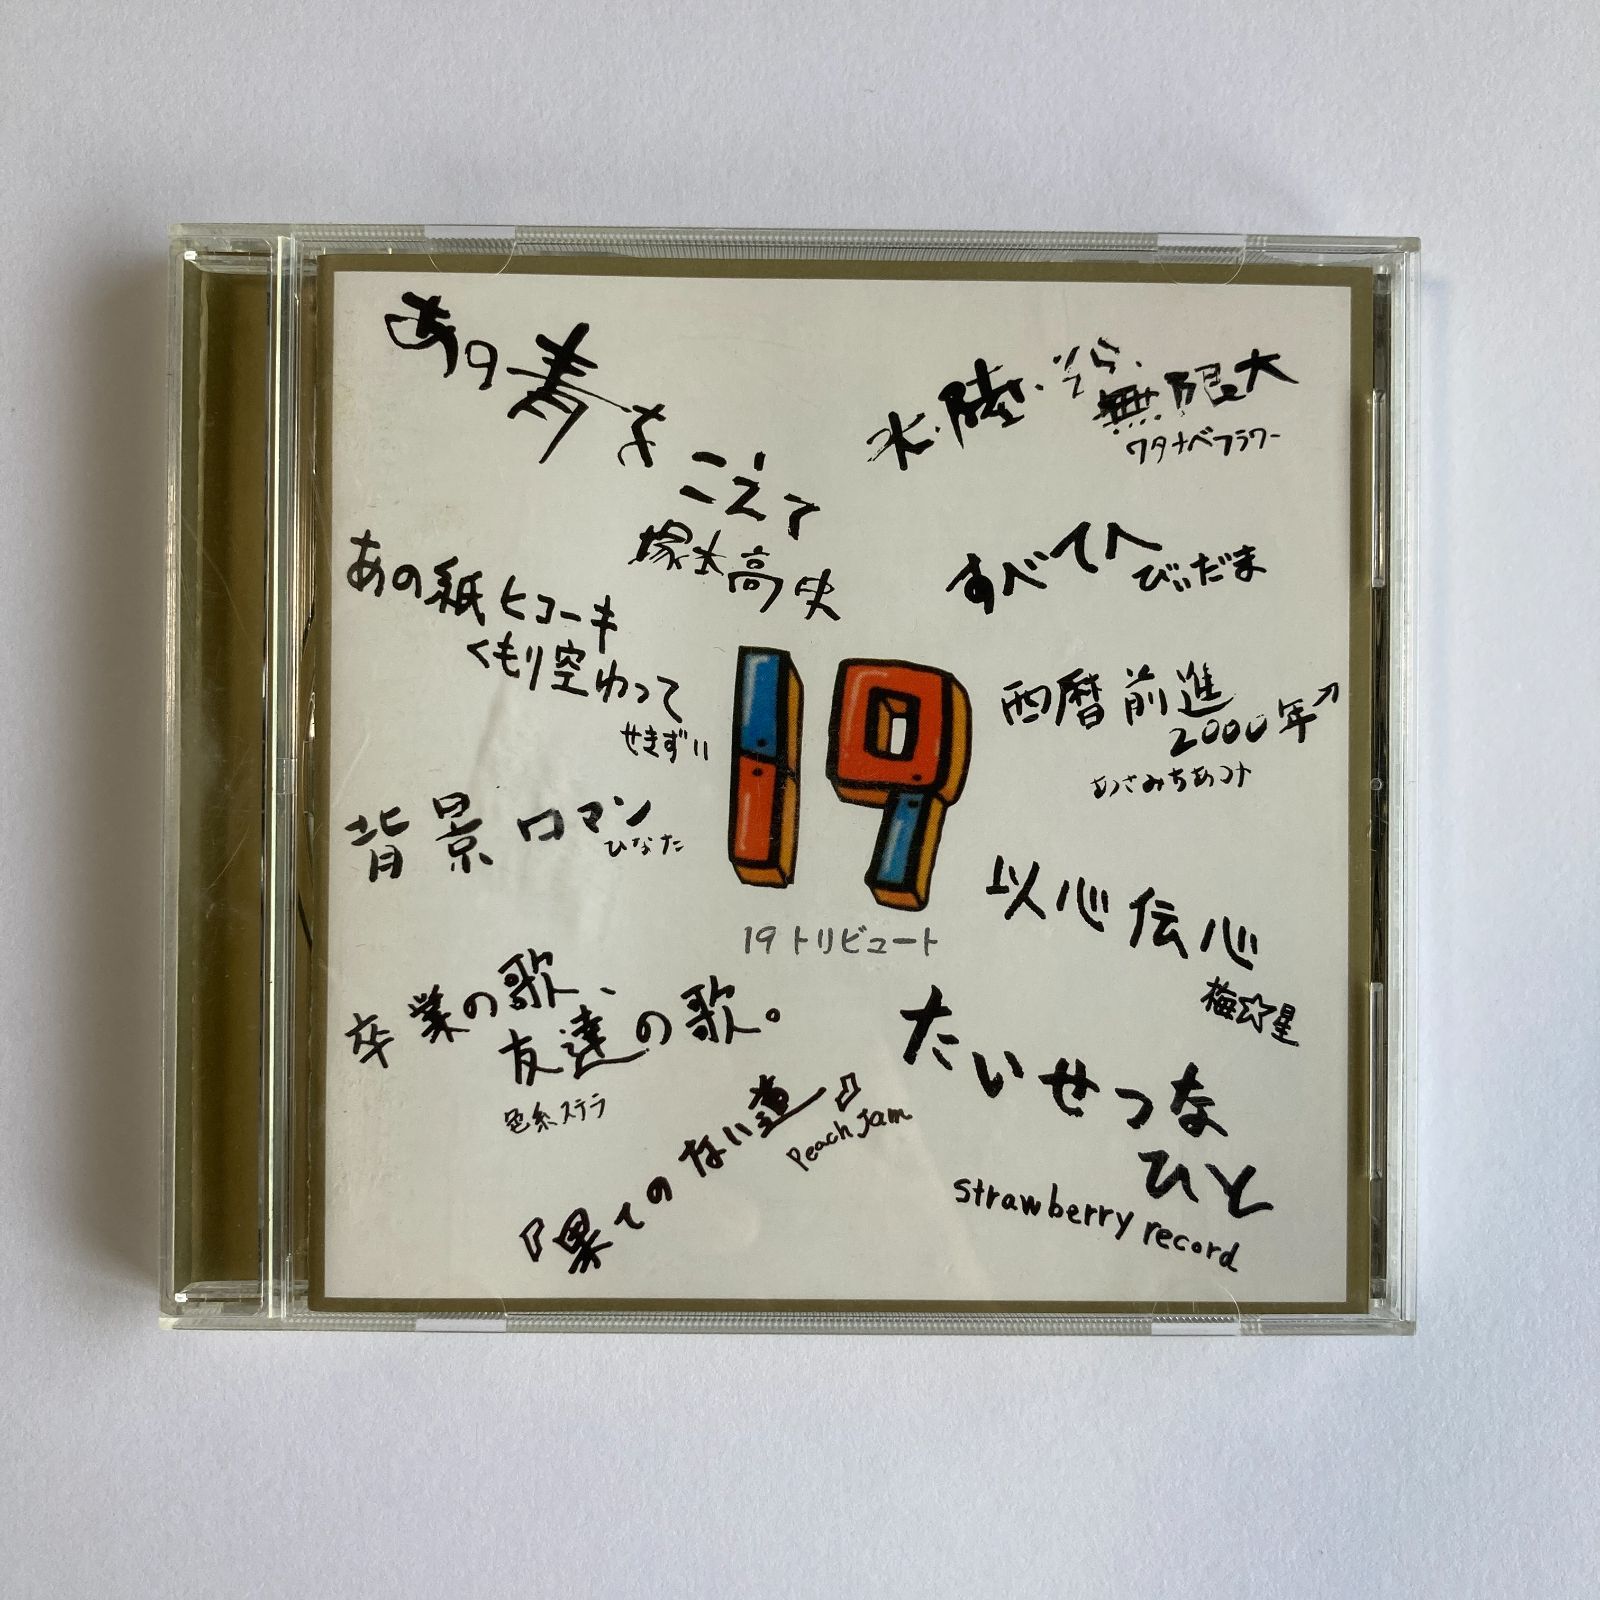 あの青をこえて
塚本高史
水・陸・そら、無限大
ワタナベフラワー
あの紙ヒコーキ
くもり空わって
せきずい
すべてへ
びぃだま
19
19トリビュート
西暦前進
2000年↗
あさみちあつみ
背景ロマン
ひなた
以心伝心
梅☆星
卒業の歌、
友達の歌。
色糸ステラ
『果てのない道』
Peach Jam
たいせつな
ひと
strawberry record